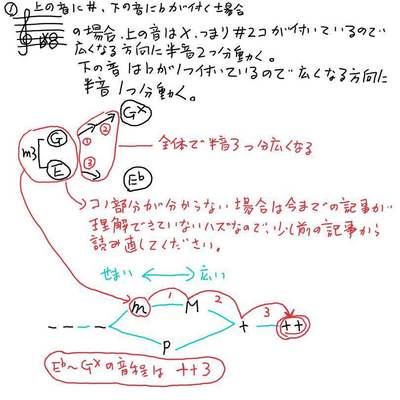 ① 上の音に#、下の音にbが付く場合
の場合、上の音は×、つまり#2コが付いているので
広くなる方向に半音2つ分動く。
下の音はbが1つ付いているので広くなる方向に
半音1つ分動く。
G×
G
①
②
m3
全体で半音3つ分広くなる
E
③
E♭
コノ部分が分からない場合は今までの記事が
理解できていないハズなので、少し前の記事から
読み直してください。
せまい
広い
m
1
M
2
+
3
++
P
E♭〜G×の音程は ++3